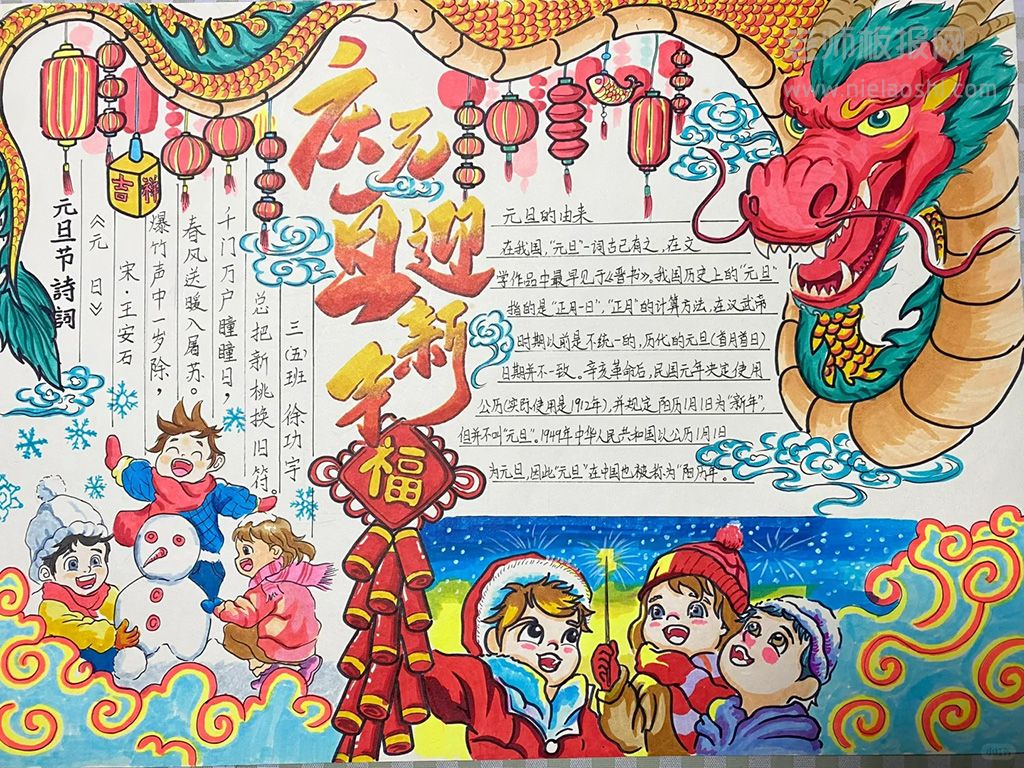 庆元旦
迎新年
元旦节詩詞
《元日》
宋·王安石
爆竹声中一岁除，
春风送暖入屠苏。
千门万户曈曈日，
总把新桃换旧符。
三(五)班 徐功宇
吉祥
福
元旦的由来
在我国，“元旦”一词古已有之，在文
学作品中最早见于《晋书》。我国历史上的“元旦”
指的是“正月一日”，“正月”的计算方法，在汉武帝
时期以前是不统一的，历代的元旦(首月首日)
日期并不一致。辛亥革命后，民国元年决定使用
公历(实际使用是1912年)，并规定阳历1月1日为“新年”，
但并不叫“元旦”。1949年中华人民共和国以公历1月1日
为元旦，因此“元旦”在中国也被称为“阳历年”。
老师板报网
www.nielaoshi.com